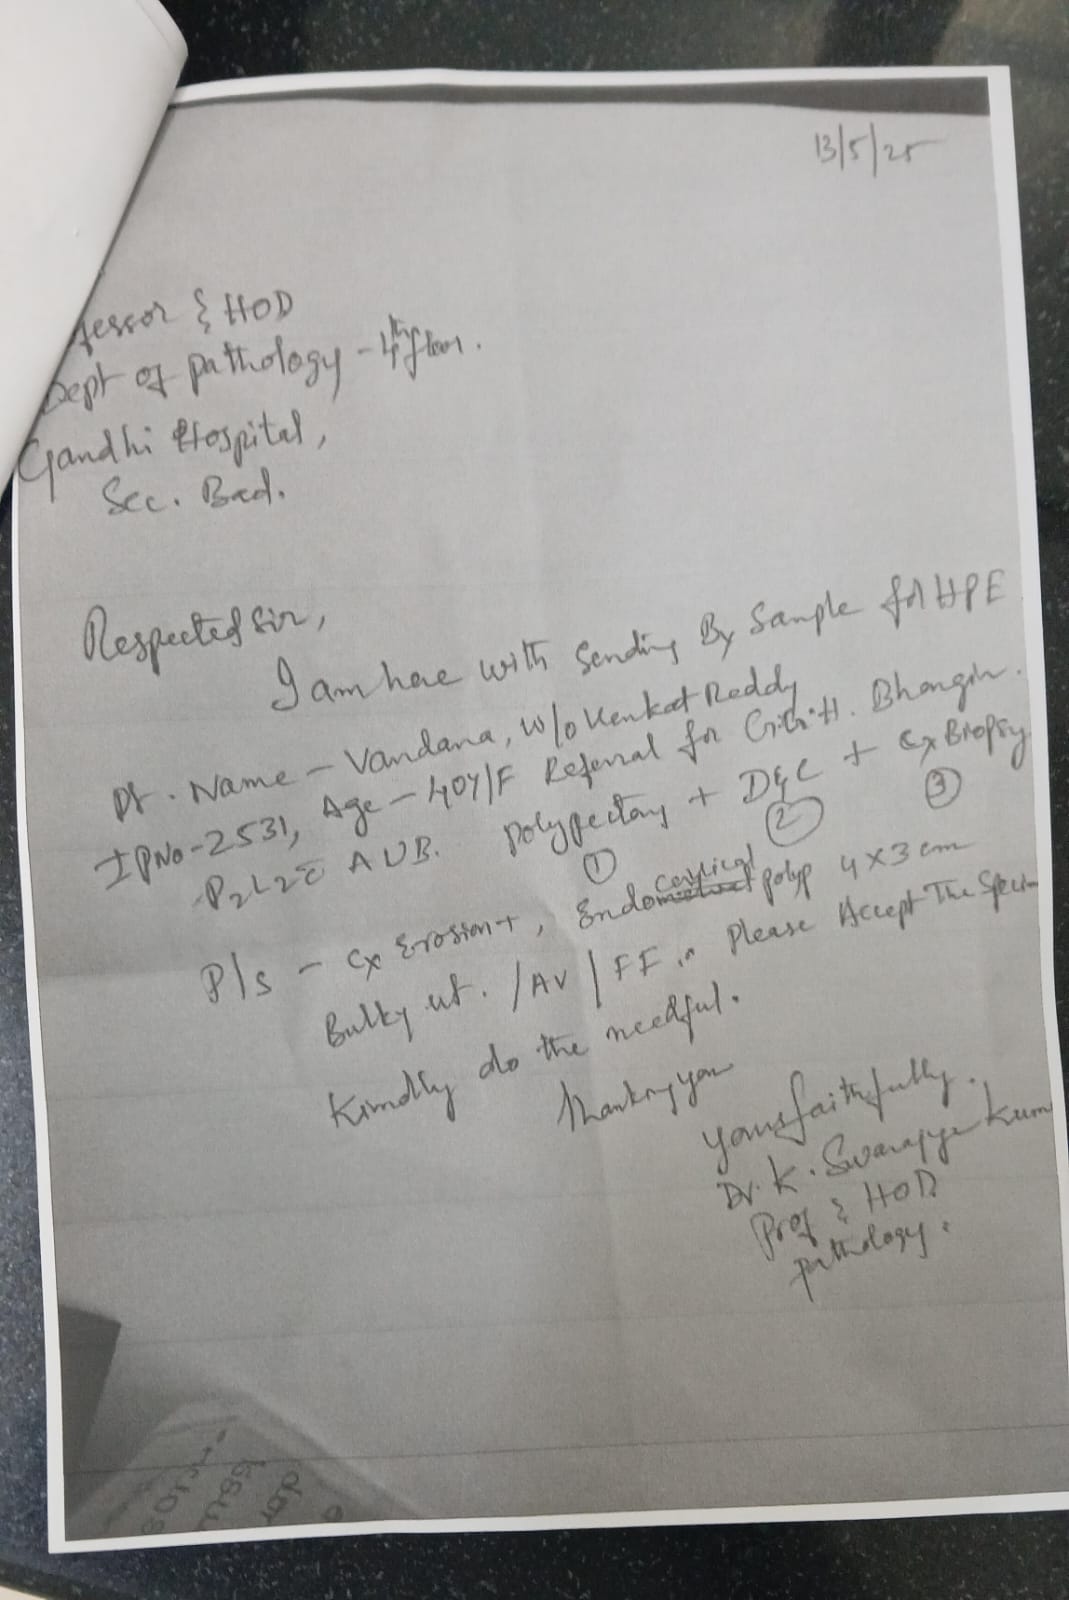 13/5/25
fessor & HOD
Dept of pathology - 4th floor.
Gandhi Hospital,
Sec. Bad.
Respected Sir,
I am here with sending By Sample for HPE
Pt. Name - Vandana, W/o Venkat Reddy
IPNo - 2531, Age - 40Y/F Referral for Bhongir.
P2L2 c̄ AUB. polypectomy + D&C + Cx Biopsy
① ② ③
P/s - Cx Erosion +, Endocervical polyp 4 x 3 cm
Bulky ut. /AV/ FF Please Accept The Speci
Kindly do the needful.
Thanking you
yours faithfully.
Dr. K. Swarajya Kum
Prof & HOD
pathology.